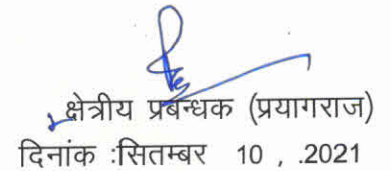 क्षेत्रीय प्रबन्धक (प्रयागराज)
दिनांक :सितम्बर 10 , .2021